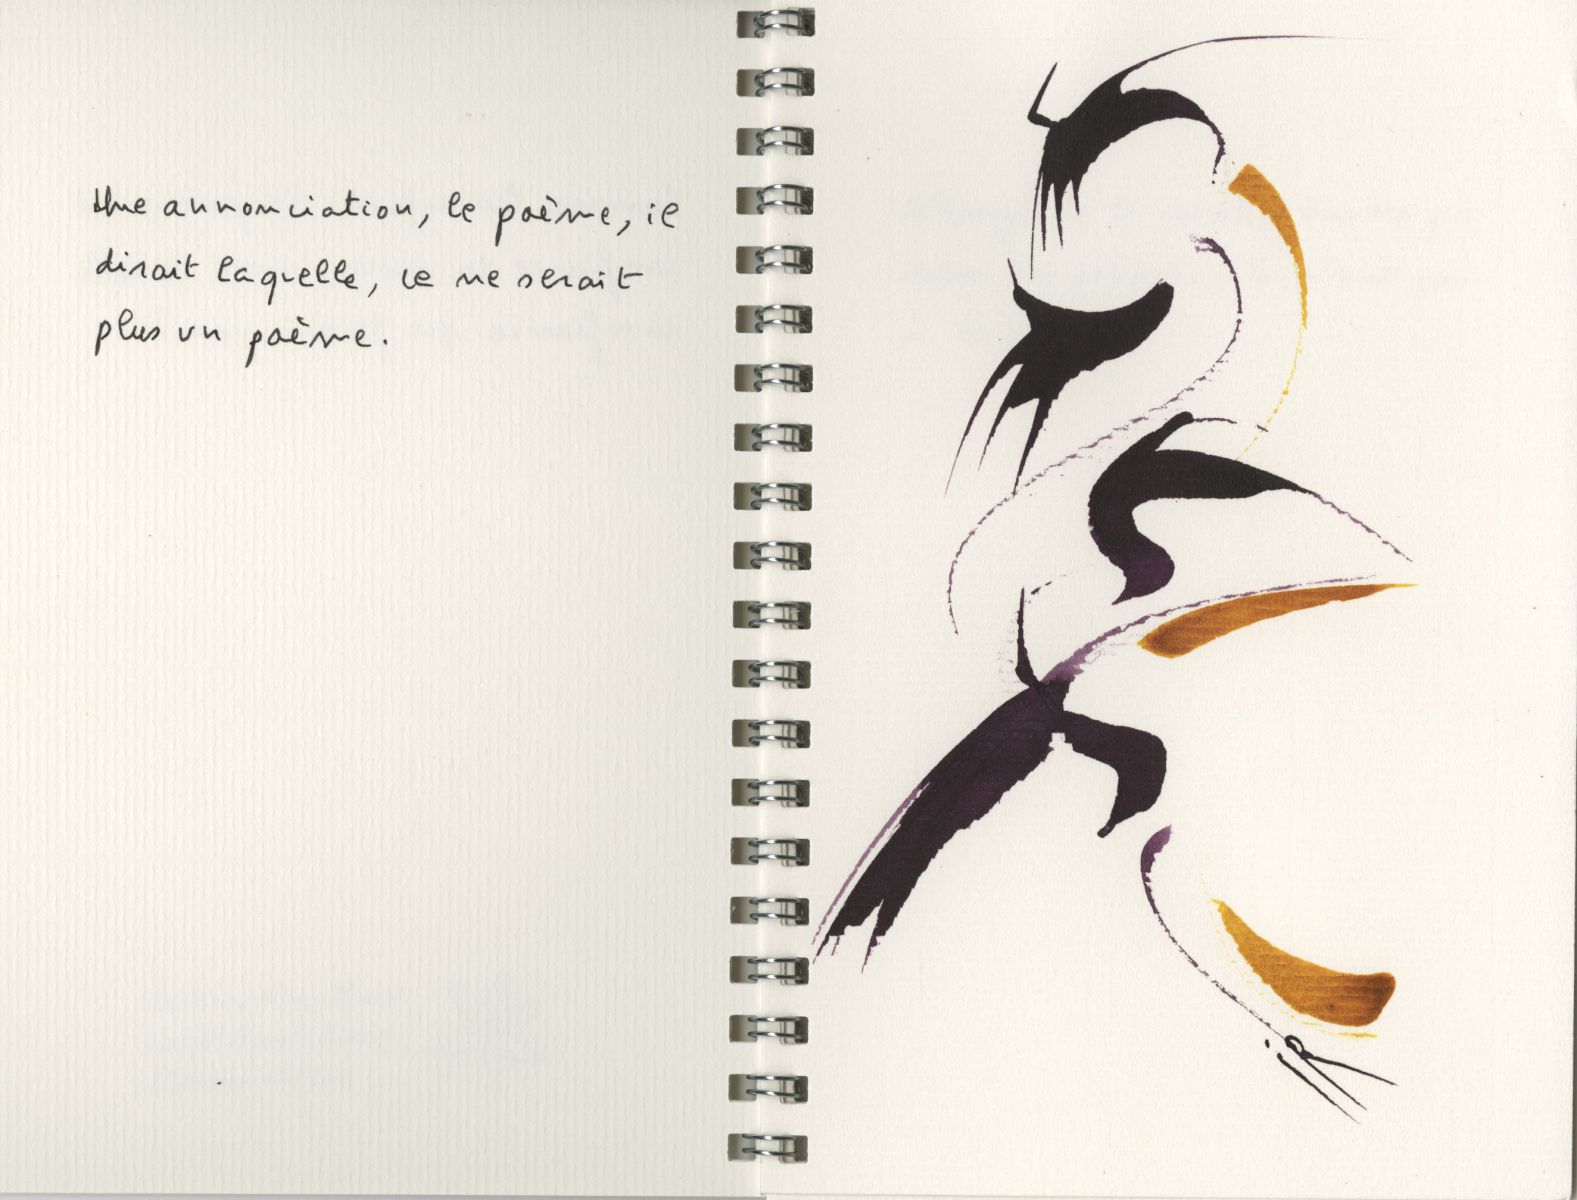 Une annonciation, le poème, il
dirait laquelle, ce ne serait
plus un poème.